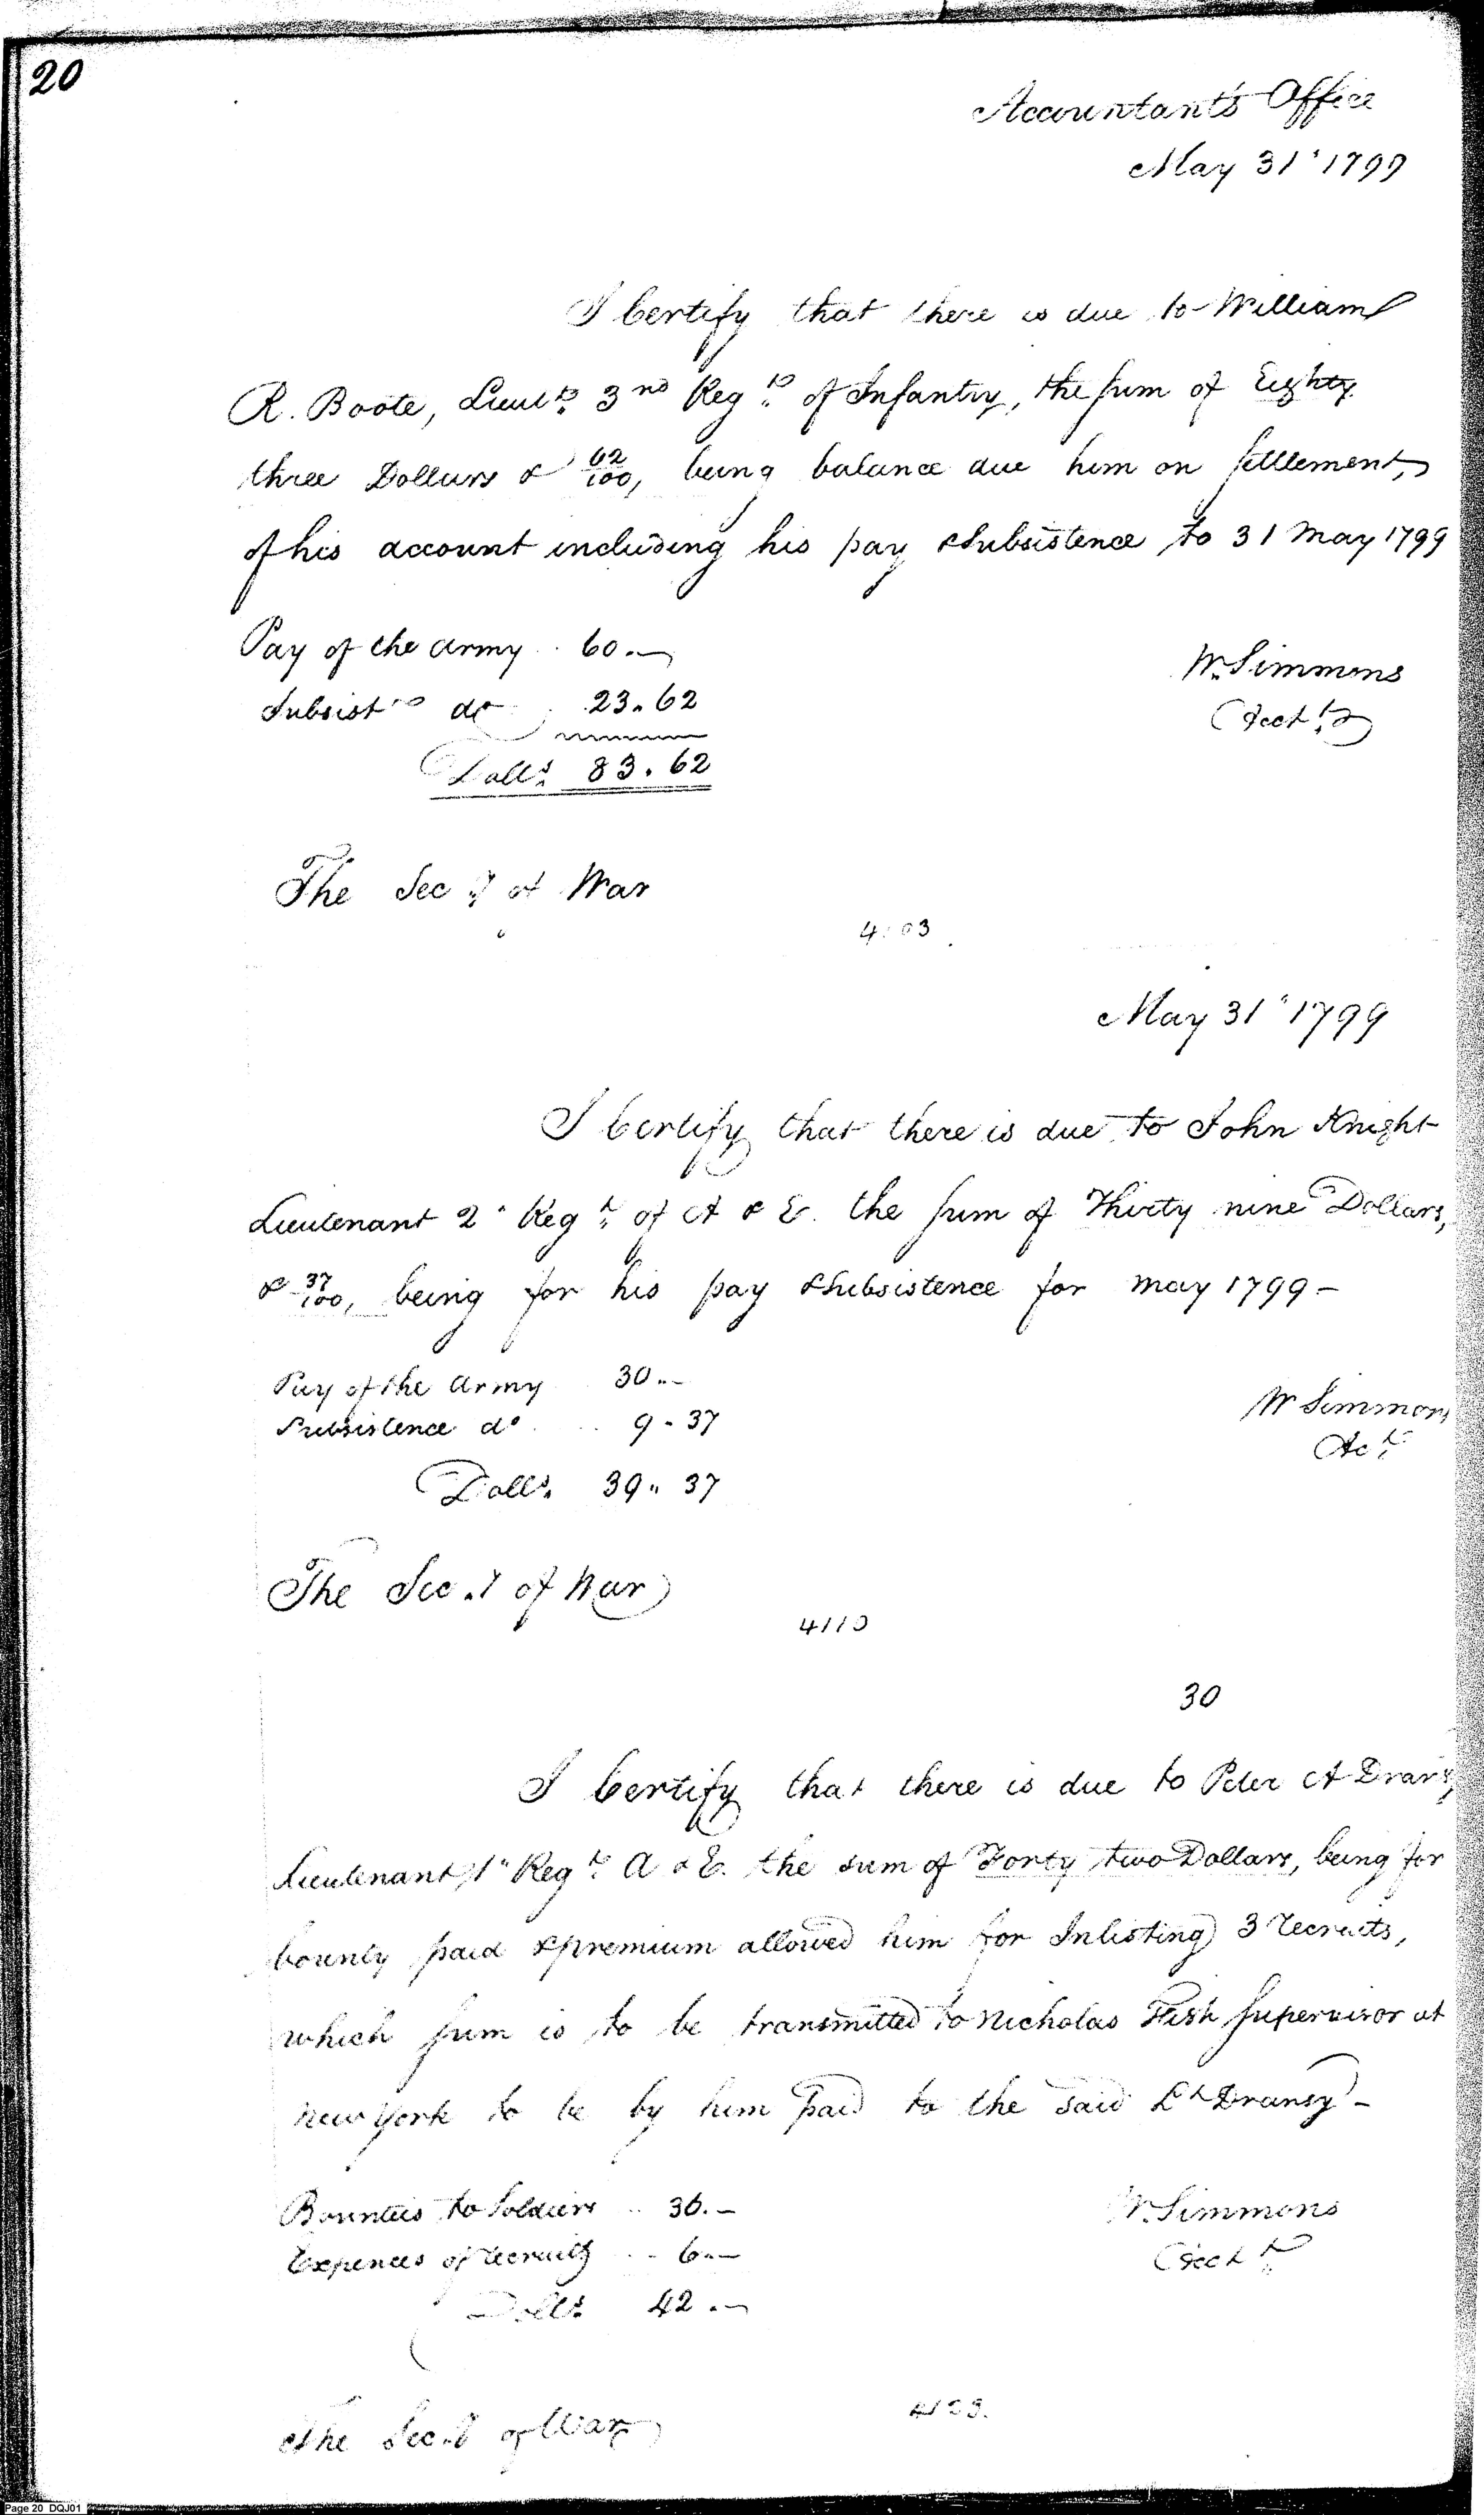 20
Accountant's Office
May 31st 1799
I Certify that there is due to William
R. Boote, Lieut. 3rd Regt. of Infantry, the sum of Eighty
three Dollars & 62/100, being balance due him on settlement,
of his account including his pay & subsistence to 31 May 1799
Pay of the army 60.—
Subsist. do 23.62
Dolls. 83.62
W. Simmons
Acctt.
The Secy. of War
May 31st 1799
I Certify that there is due to John Knight
Lieutenant 2d Regt. of A & E. the sum of Thirty nine Dollars,
& 37/100, being for his pay & subsistence for may 1799 —
Pay of the Army 30..—
Subsistence do. 9.37
Dolls. 39.. 37
W Simmons
Act.
The Secy. of War
30
I Certify that there is due to Peter A Dransy,
Lieutenant 1st Regt. A & E. the sum of Forty two Dollars, being for
bounty paid & premium allowed him for Inlisting 3 recruits,
which sum is to be transmitted to Nicholas Fish Supervisor at
New York to be by him paid to the said Lt Dransy —
Bounties to Soldiers .. 36.—
Expences of recruitg .. 6.—
Dolls. 42.—
W. Simmons
Acctt.
The Secy. of War
Page 20 DQJ01